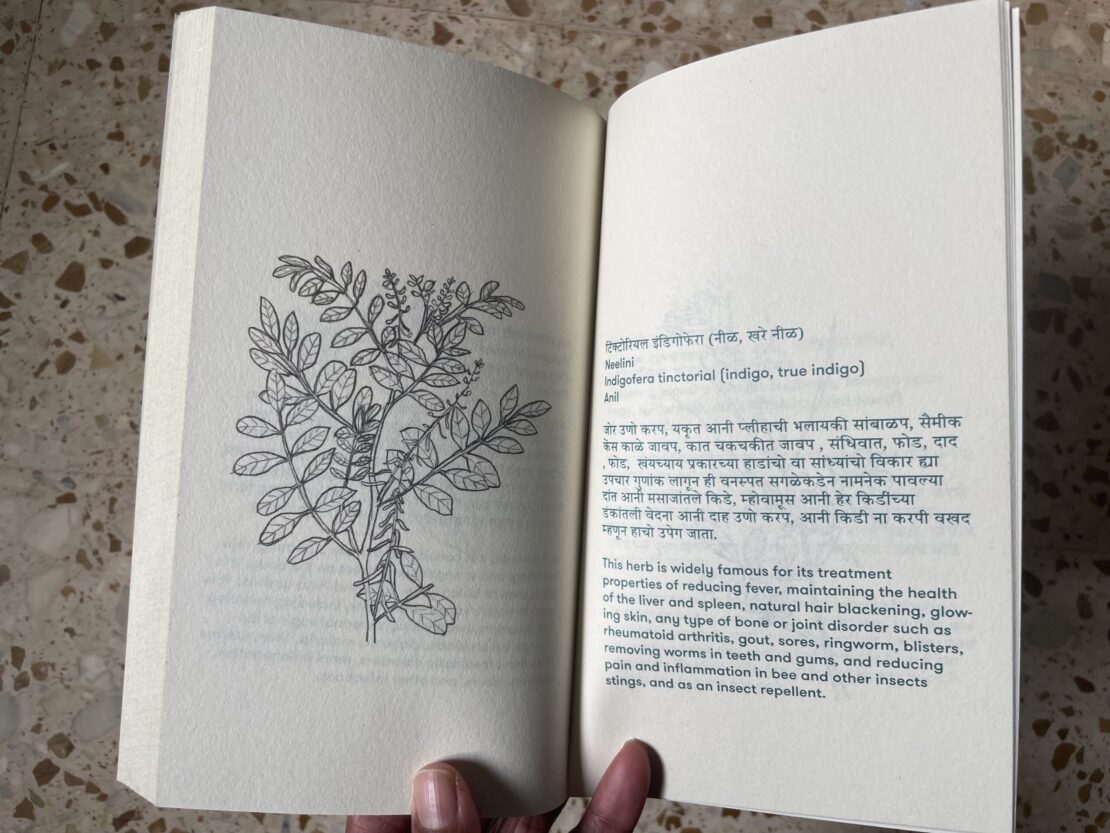 टिंक्टोरियल इंडिगोफेरा (नीळ, खरे नीळ)
Neelini
Indigofera tinctorial (indigo, true indigo)
Anil
जोर उणो करप, यकृत आनी प्लीहाची भलायकी सांबाळप, सैमीक
केस काळे जावप, कात चकचकीत जावप , संधिवात, फोड, दाद
, फोड, खंयच्याय प्रकारच्या हाडांचो वा सांध्यांचो विकार ह्या
उपचार गुणांक लागून ही वनस्पत सगळेकडेन नामनेक पावल्या
दांत आनी मसाजांतले किडे, म्होवामूस आनी हेर किडींच्या
डंकांतली वेदना आनी दाह उणो करप, आनी किडी ना करपी वखद
म्हणून हाचो उपेग जाता.
This herb is widely famous for its treatment
properties of reducing fever, maintaining the health
of the liver and spleen, natural hair blackening, glow-
ing skin, any type of bone or joint disorder such as
rheumatoid arthritis, gout, sores, ringworm, blisters,
removing worms in teeth and gums, and reducing
pain and inflammation in bee and other insects
stings, and as an insect repellent.